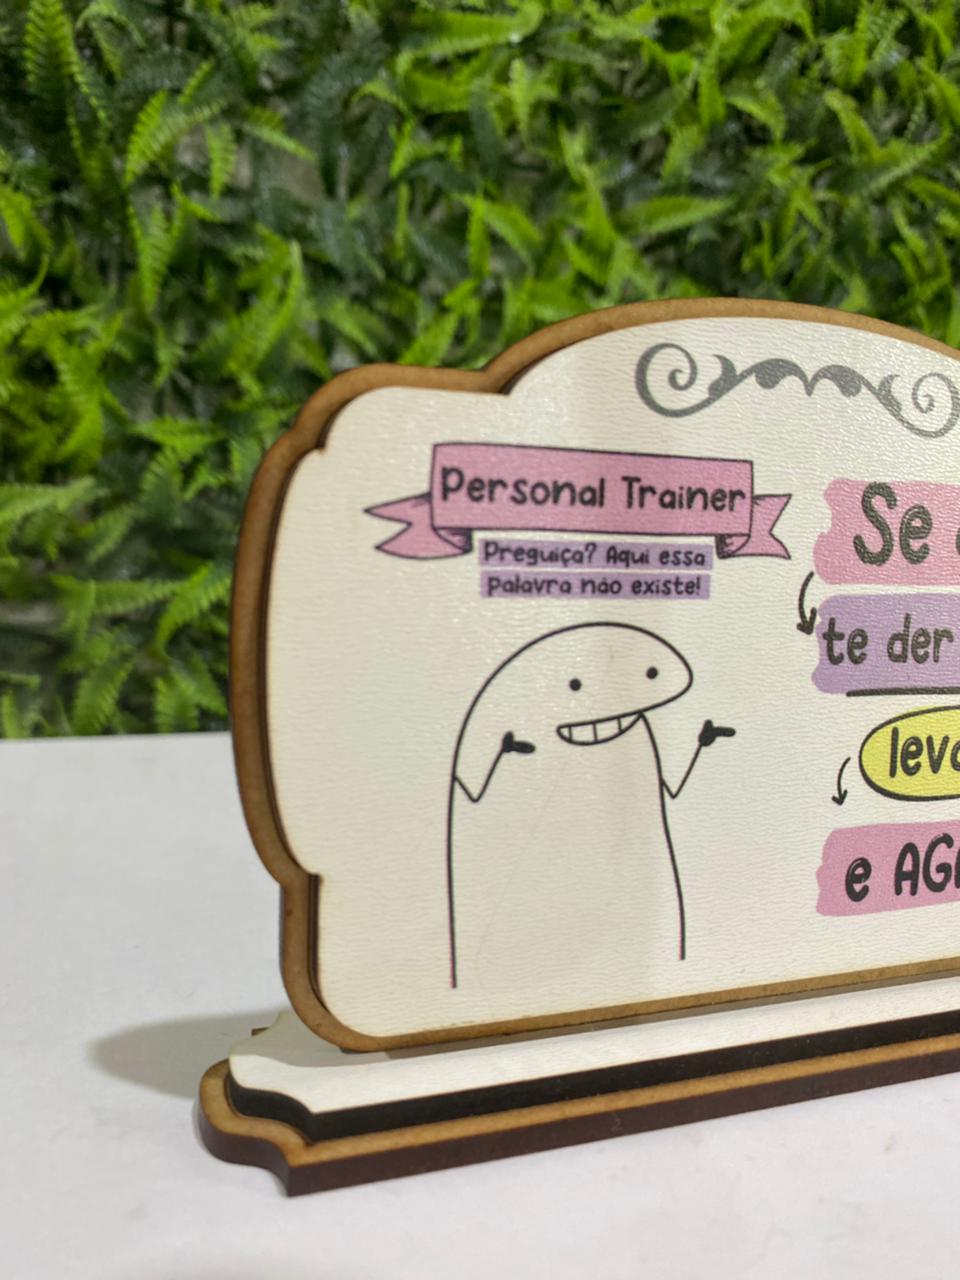 Personal Trainer
Preguiça? Aqui essa
palavra não existe!
Se
te der
e